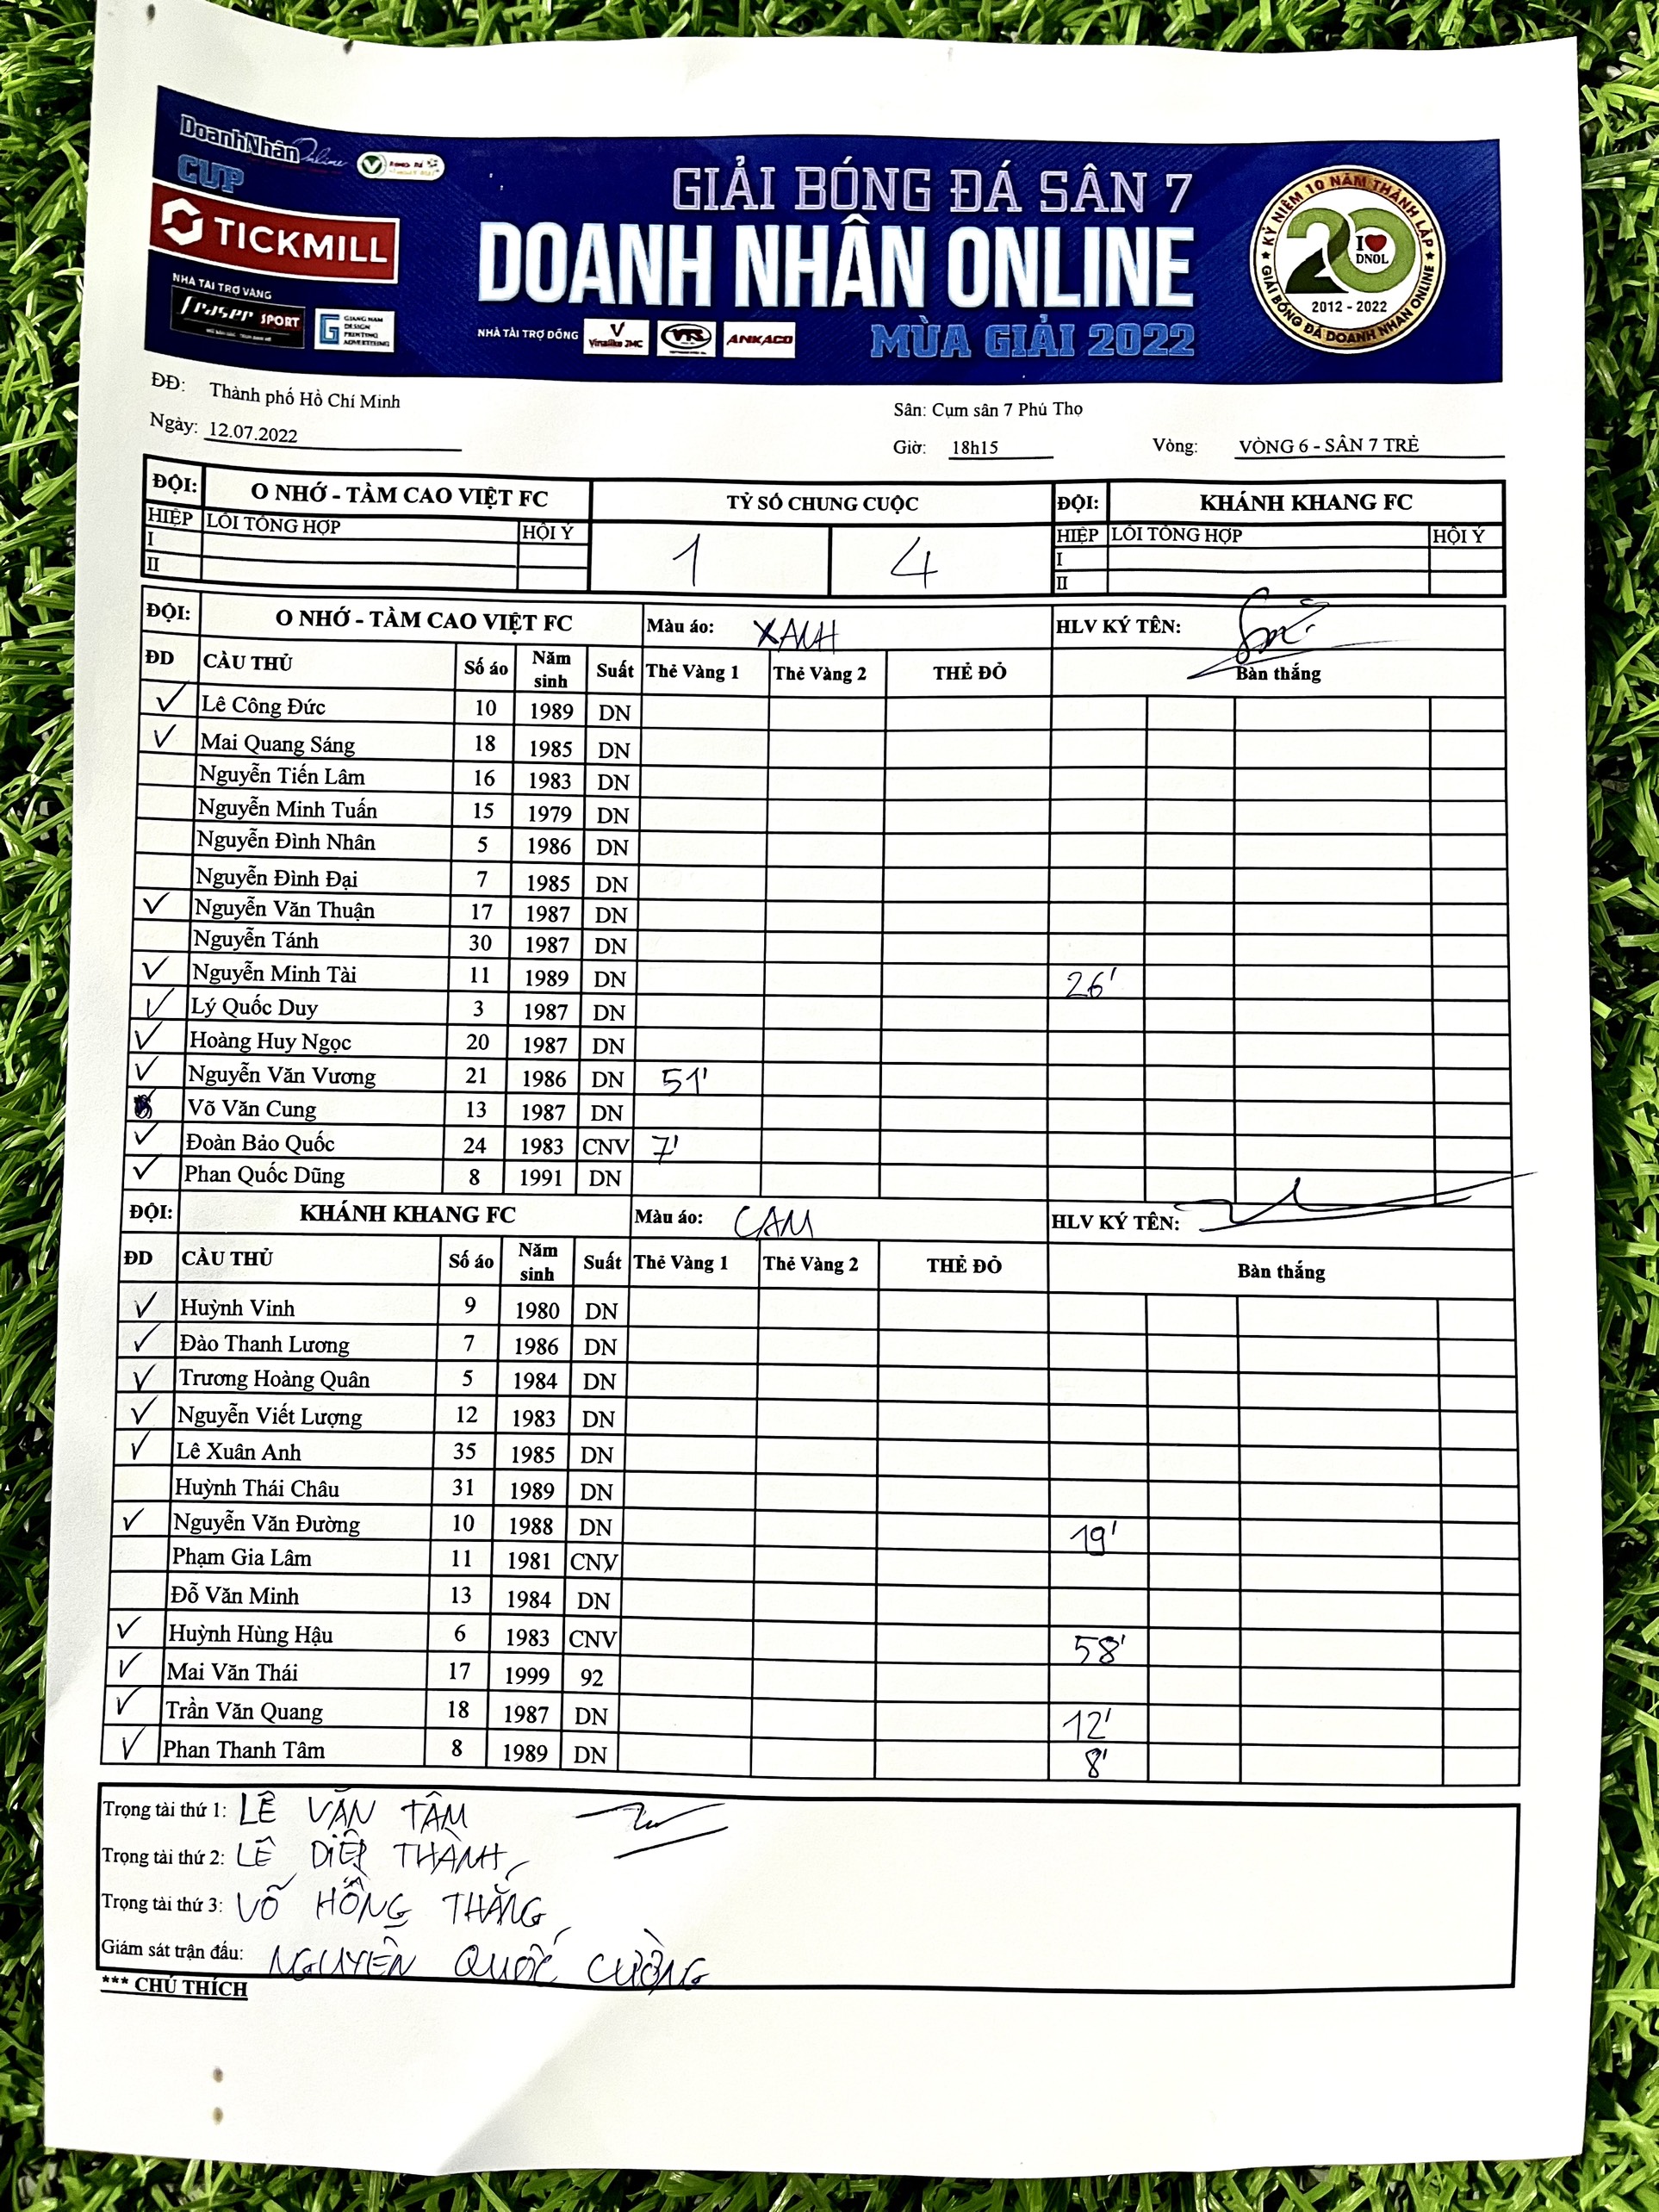 DoanhNhân Online
CUP
TICKMILL
NHÀ TÀI TRỢ VÀNG
Fraser SPORT
GIANG NAM
DESIGN
PRINTING
ADVERTISING
GIẢI BÓNG ĐÁ SÂN 7
DOANH NHÂN ONLINE
NHÀ TÀI TRỢ ĐỒNG Vinalike JMC VRS ANKACO MÙA GIẢI 2022
KỶ NIỆM 10 NĂM THÀNH LẬP
20
I ♥
DNOL
2012 - 2022
GIẢI BÓNG ĐÁ DOANH NHÂN ONLINE
ĐĐ: Thành phố Hồ Chí Minh Sân: Cụm sân 7 Phú Thọ
Ngày: 12.07.2022 Giờ: 18h15 Vòng: VÒNG 6 - SÂN 7 TRẺ
ĐỘI: O NHỚ - TẦM CAO VIỆT FC TỶ SỐ CHUNG CUỘC ĐỘI: KHÁNH KHANG FC
HIỆP LỖI TỔNG HỢP HỘI Ý 1 4 HIỆP LỖI TỔNG HỢP HỘI Ý
I I
II II
ĐỘI: O NHỚ - TẦM CAO VIỆT FC Màu áo: XANH HLV KÝ TÊN:
ĐD CẦU THỦ Số áo Năm sinh Suất Thẻ Vàng 1 Thẻ Vàng 2 THẺ ĐỎ Bàn thắng
✓ Lê Công Đức 10 1989 DN
✓ Mai Quang Sáng 18 1985 DN
Nguyễn Tiến Lâm 16 1983 DN
Nguyễn Minh Tuấn 15 1979 DN
Nguyễn Đình Nhân 5 1986 DN
Nguyễn Đình Đại 7 1985 DN
✓ Nguyễn Văn Thuận 17 1987 DN
Nguyễn Tánh 30 1987 DN
✓ Nguyễn Minh Tài 11 1989 DN 26'
✓ Lý Quốc Duy 3 1987 DN
✓ Hoàng Huy Ngọc 20 1987 DN
✓ Nguyễn Văn Vương 21 1986 DN 51'
Võ Văn Cung 13 1987 DN
✓ Đoàn Bảo Quốc 24 1983 CNV 7'
✓ Phan Quốc Dũng 8 1991 DN
ĐỘI: KHÁNH KHANG FC Màu áo: CAM HLV KÝ TÊN:
ĐD CẦU THỦ Số áo Năm sinh Suất Thẻ Vàng 1 Thẻ Vàng 2 THẺ ĐỎ Bàn thắng
✓ Huỳnh Vinh 9 1980 DN
✓ Đào Thanh Lương 7 1986 DN
✓ Trương Hoàng Quân 5 1984 DN
✓ Nguyễn Viết Lượng 12 1983 DN
✓ Lê Xuân Anh 35 1985 DN
Huỳnh Thái Châu 31 1989 DN
✓ Nguyễn Văn Đường 10 1988 DN 19'
Phạm Gia Lâm 11 1981 CNV
Đỗ Văn Minh 13 1984 DN
✓ Huỳnh Hùng Hậu 6 1983 CNV 58'
✓ Mai Văn Thái 17 1999 92
✓ Trần Văn Quang 18 1987 DN 12'
✓ Phan Thanh Tâm 8 1989 DN 8'
Trọng tài thứ 1: LÊ VĂN TÂM
Trọng tài thứ 2: LÊ DIỆP THÀNH
Trọng tài thứ 3: VÕ HỒNG THẮNG
Giám sát trận đấu: NGUYỄN QUỐC CƯỜNG
*** CHÚ THÍCH